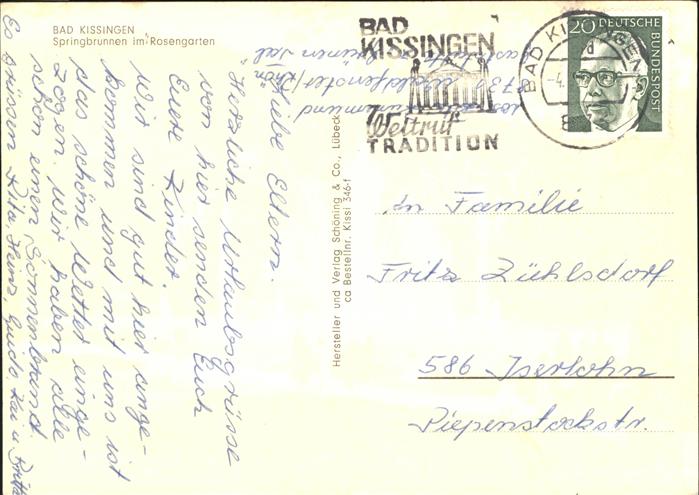 BAD KISSINGEN
Springbrunnen im Rosengarten
Liebe Eltern.
"Herzliche Urlaubsgrüsse
von hier senden Euch
Euere Kinder.
Wir sind gut hier ange-
kommen und mit uns ist
das schöne Wetter einge-
zogen. Wir haben alle
schon einen Sonnenbrand.
Es grüssen Rita, Heinz, Guido Kai u. Britta
Hersteller und Verlag Schöning & Co., Lübeck
ca Bestellnr. Kissi 346-f
BAD
KISSINGEN
Weltruf
TRADITION
BAD KISSINGEN
d
-4.
20 DEUTSCHE
BUNDESPOST
An Familie
Fritz Zühlsdorf
586 Iserlohn
Piepenstockstr.